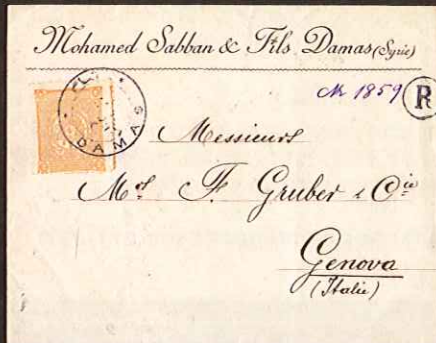 Mohamed Sabban & Fils Damas (Syrie)
№ 1859 R
DAMAS
Messieurs
Mrs. F. Gruber & Cie
Genova
(Italie)